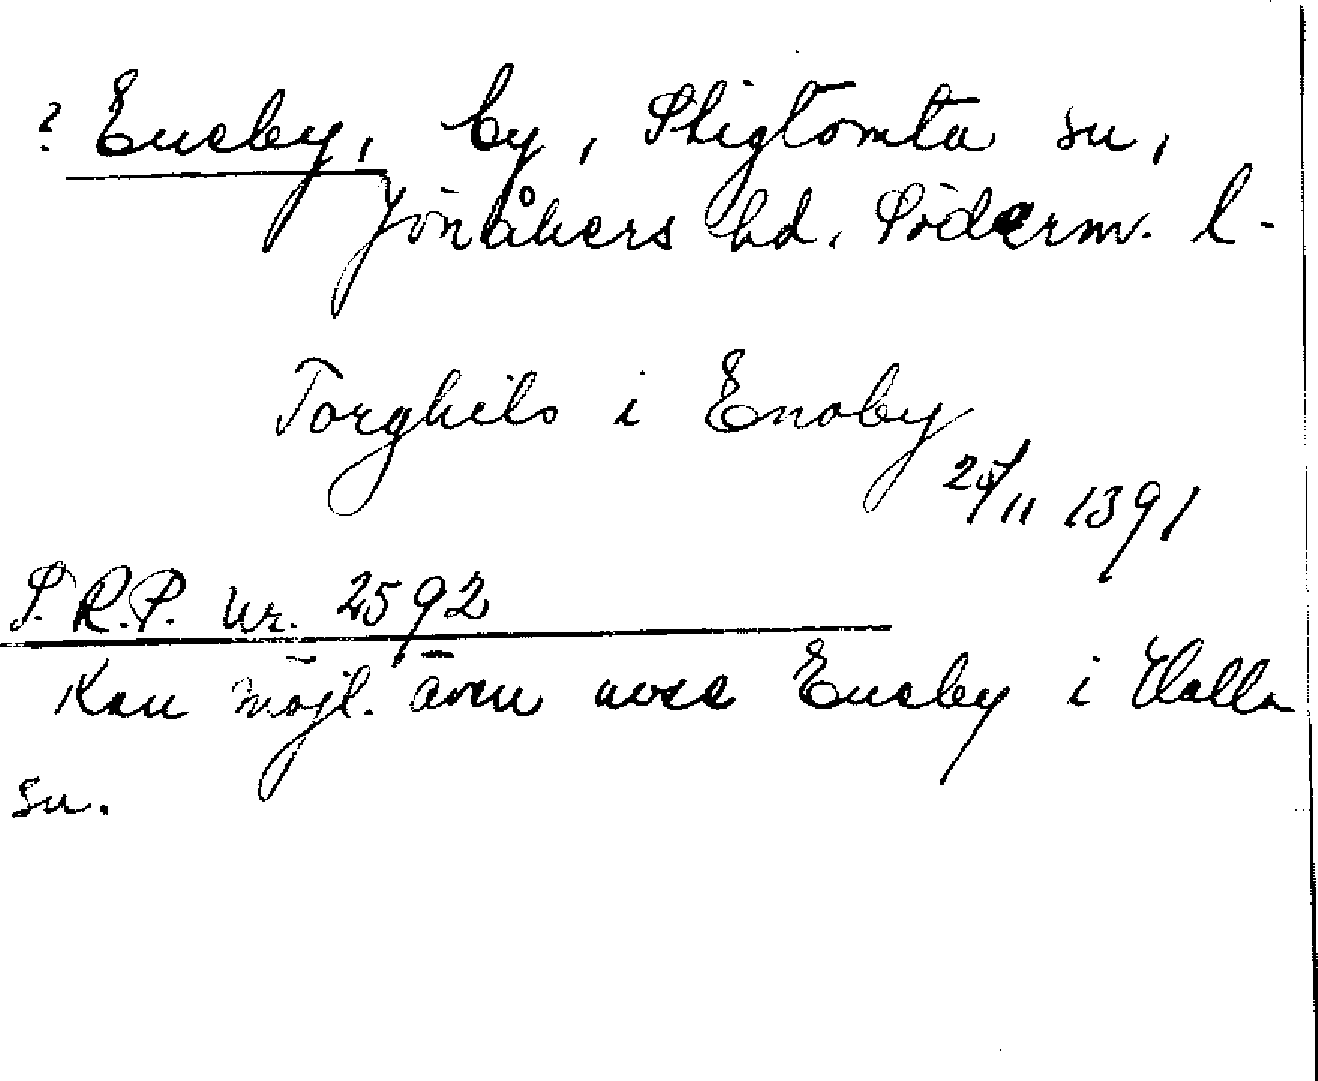 ? Eneby, by, Stigtomta sn,
Jönåkers hd, Söderm. l.
Torghils i Enoby
25/11 1391
S.R.P. Nr. 2592
Kan möjl. även avse Eneby i Halla
sn.